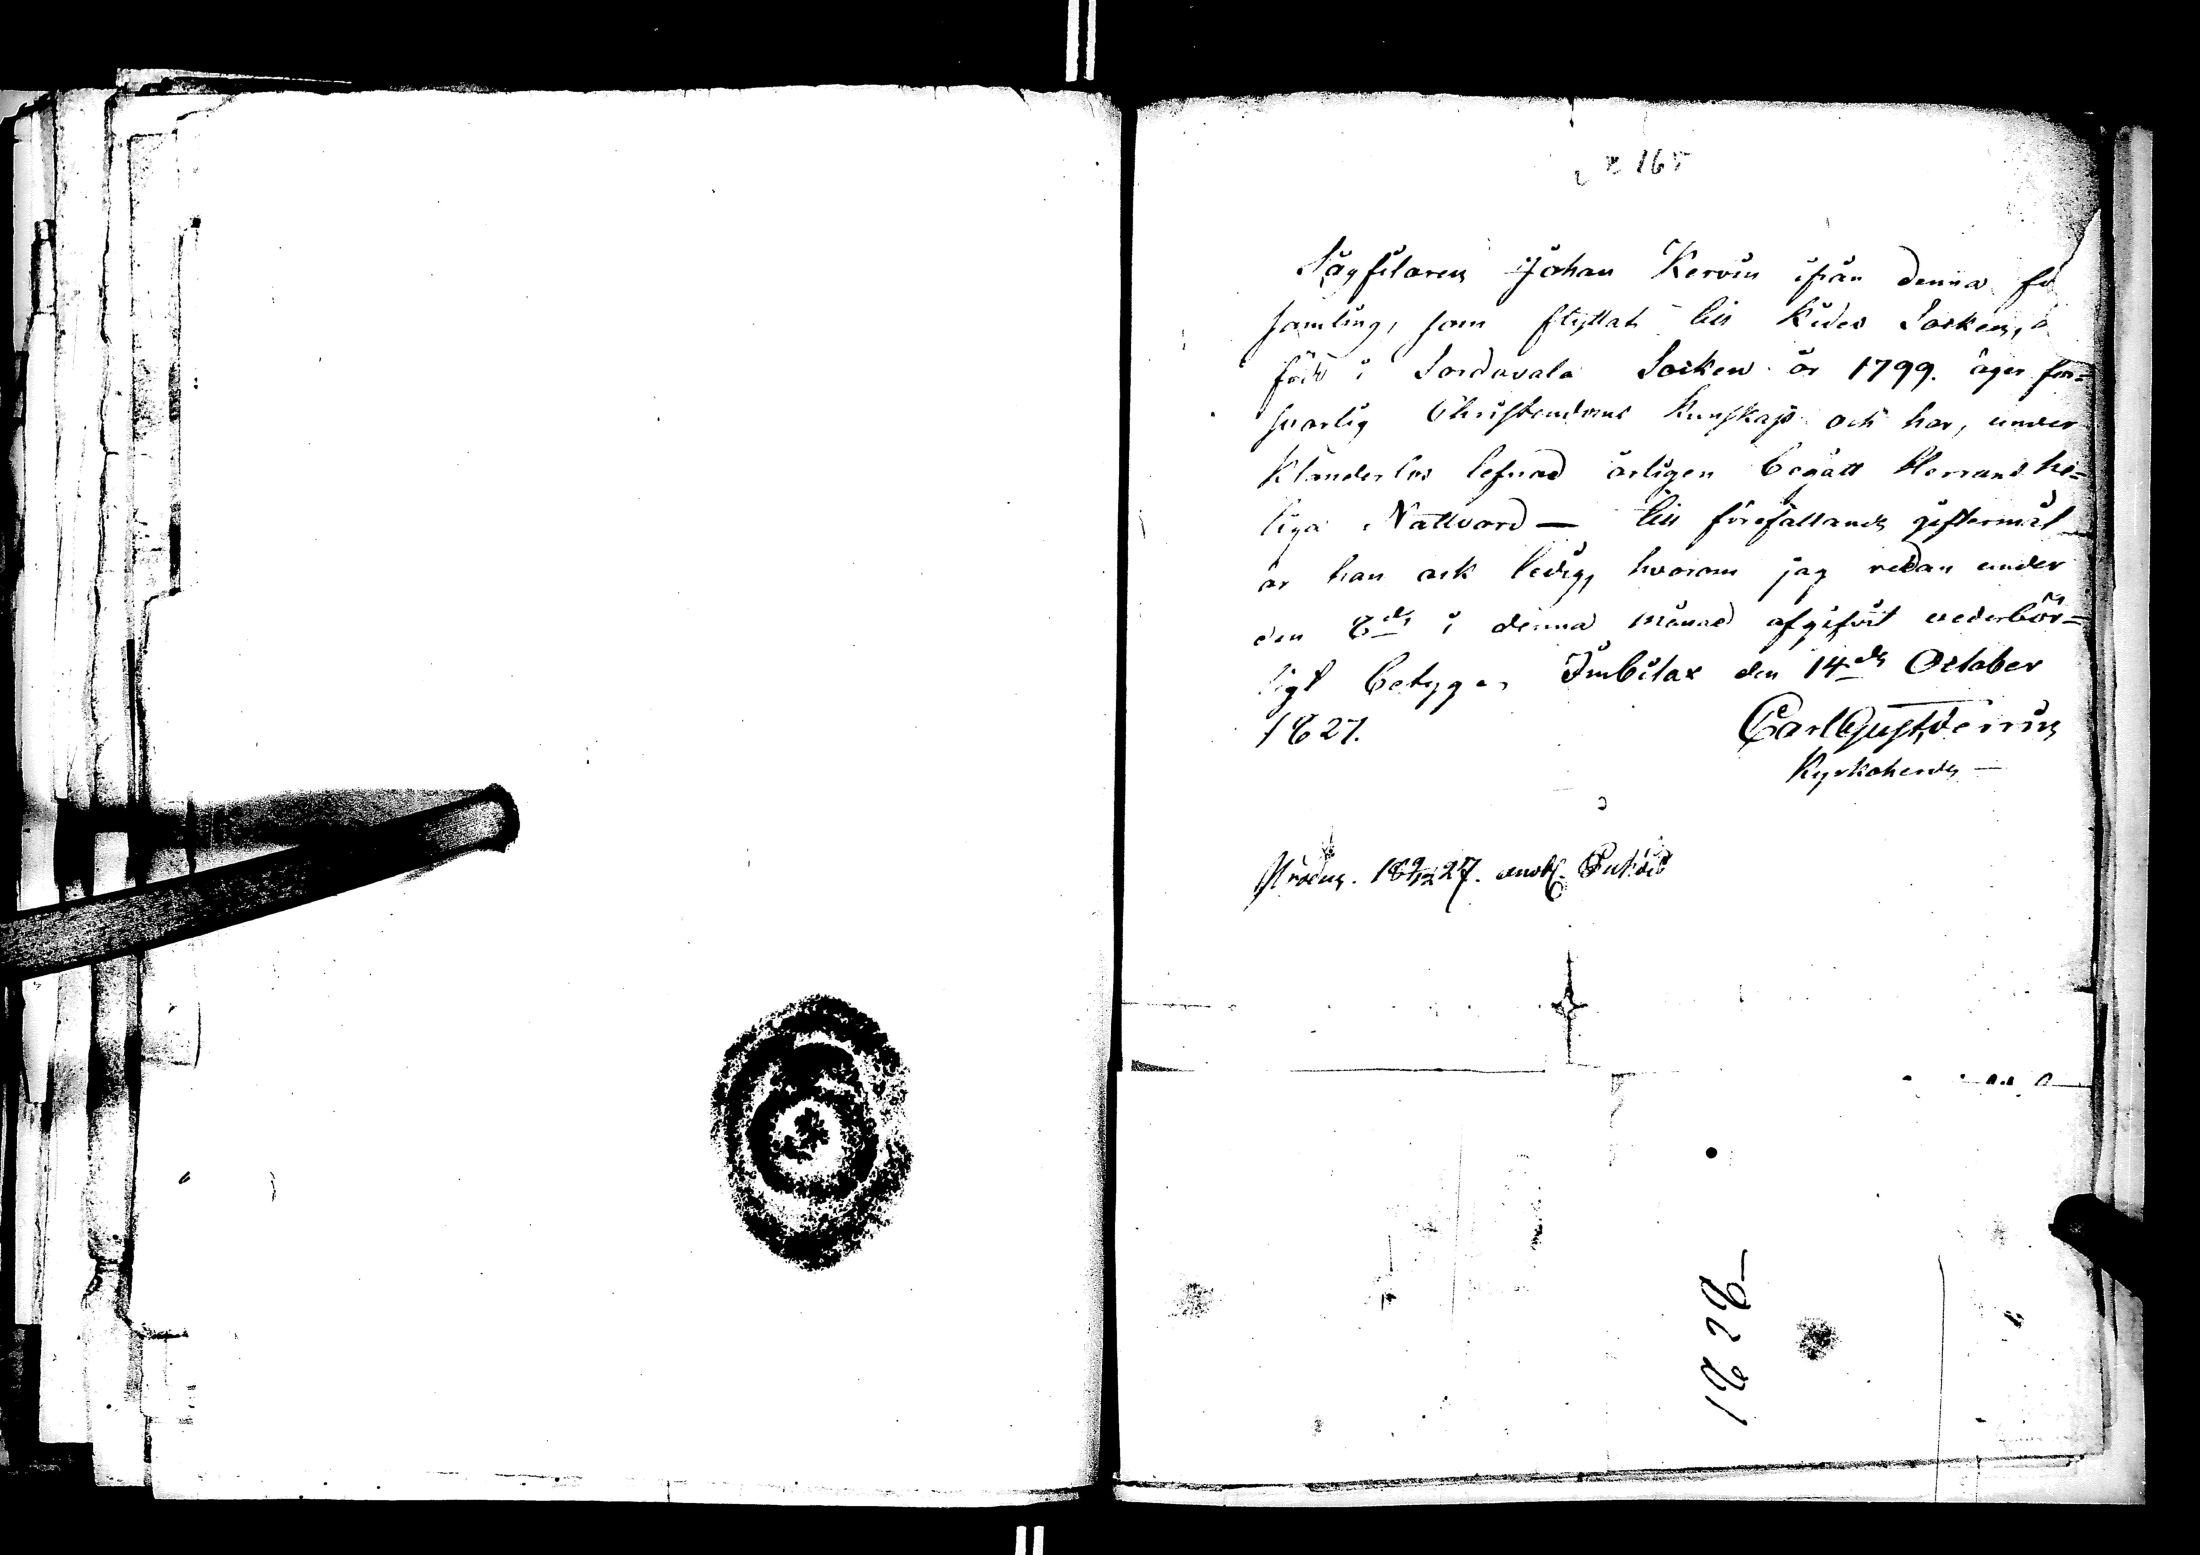 N 165
Sågfilaren Johan Kervin ifrån denna fö
samling, som flyttat till Kides Socken, ä
född i Sordavala Socken år 1799. äger för=
svarlig Christendoms kunskap och har, under
klanderlös lefnad årligen begått Herrans he=
liga Nattvard — till förefallande giftermål
är han ock ledig, hvarom jag redan under
den 8de i denna månad afgifvit vederbör=
ligt betyg. Imbilax den 14de October
1827. Carl Gust.
Kyrkoherde —
1827.
1828